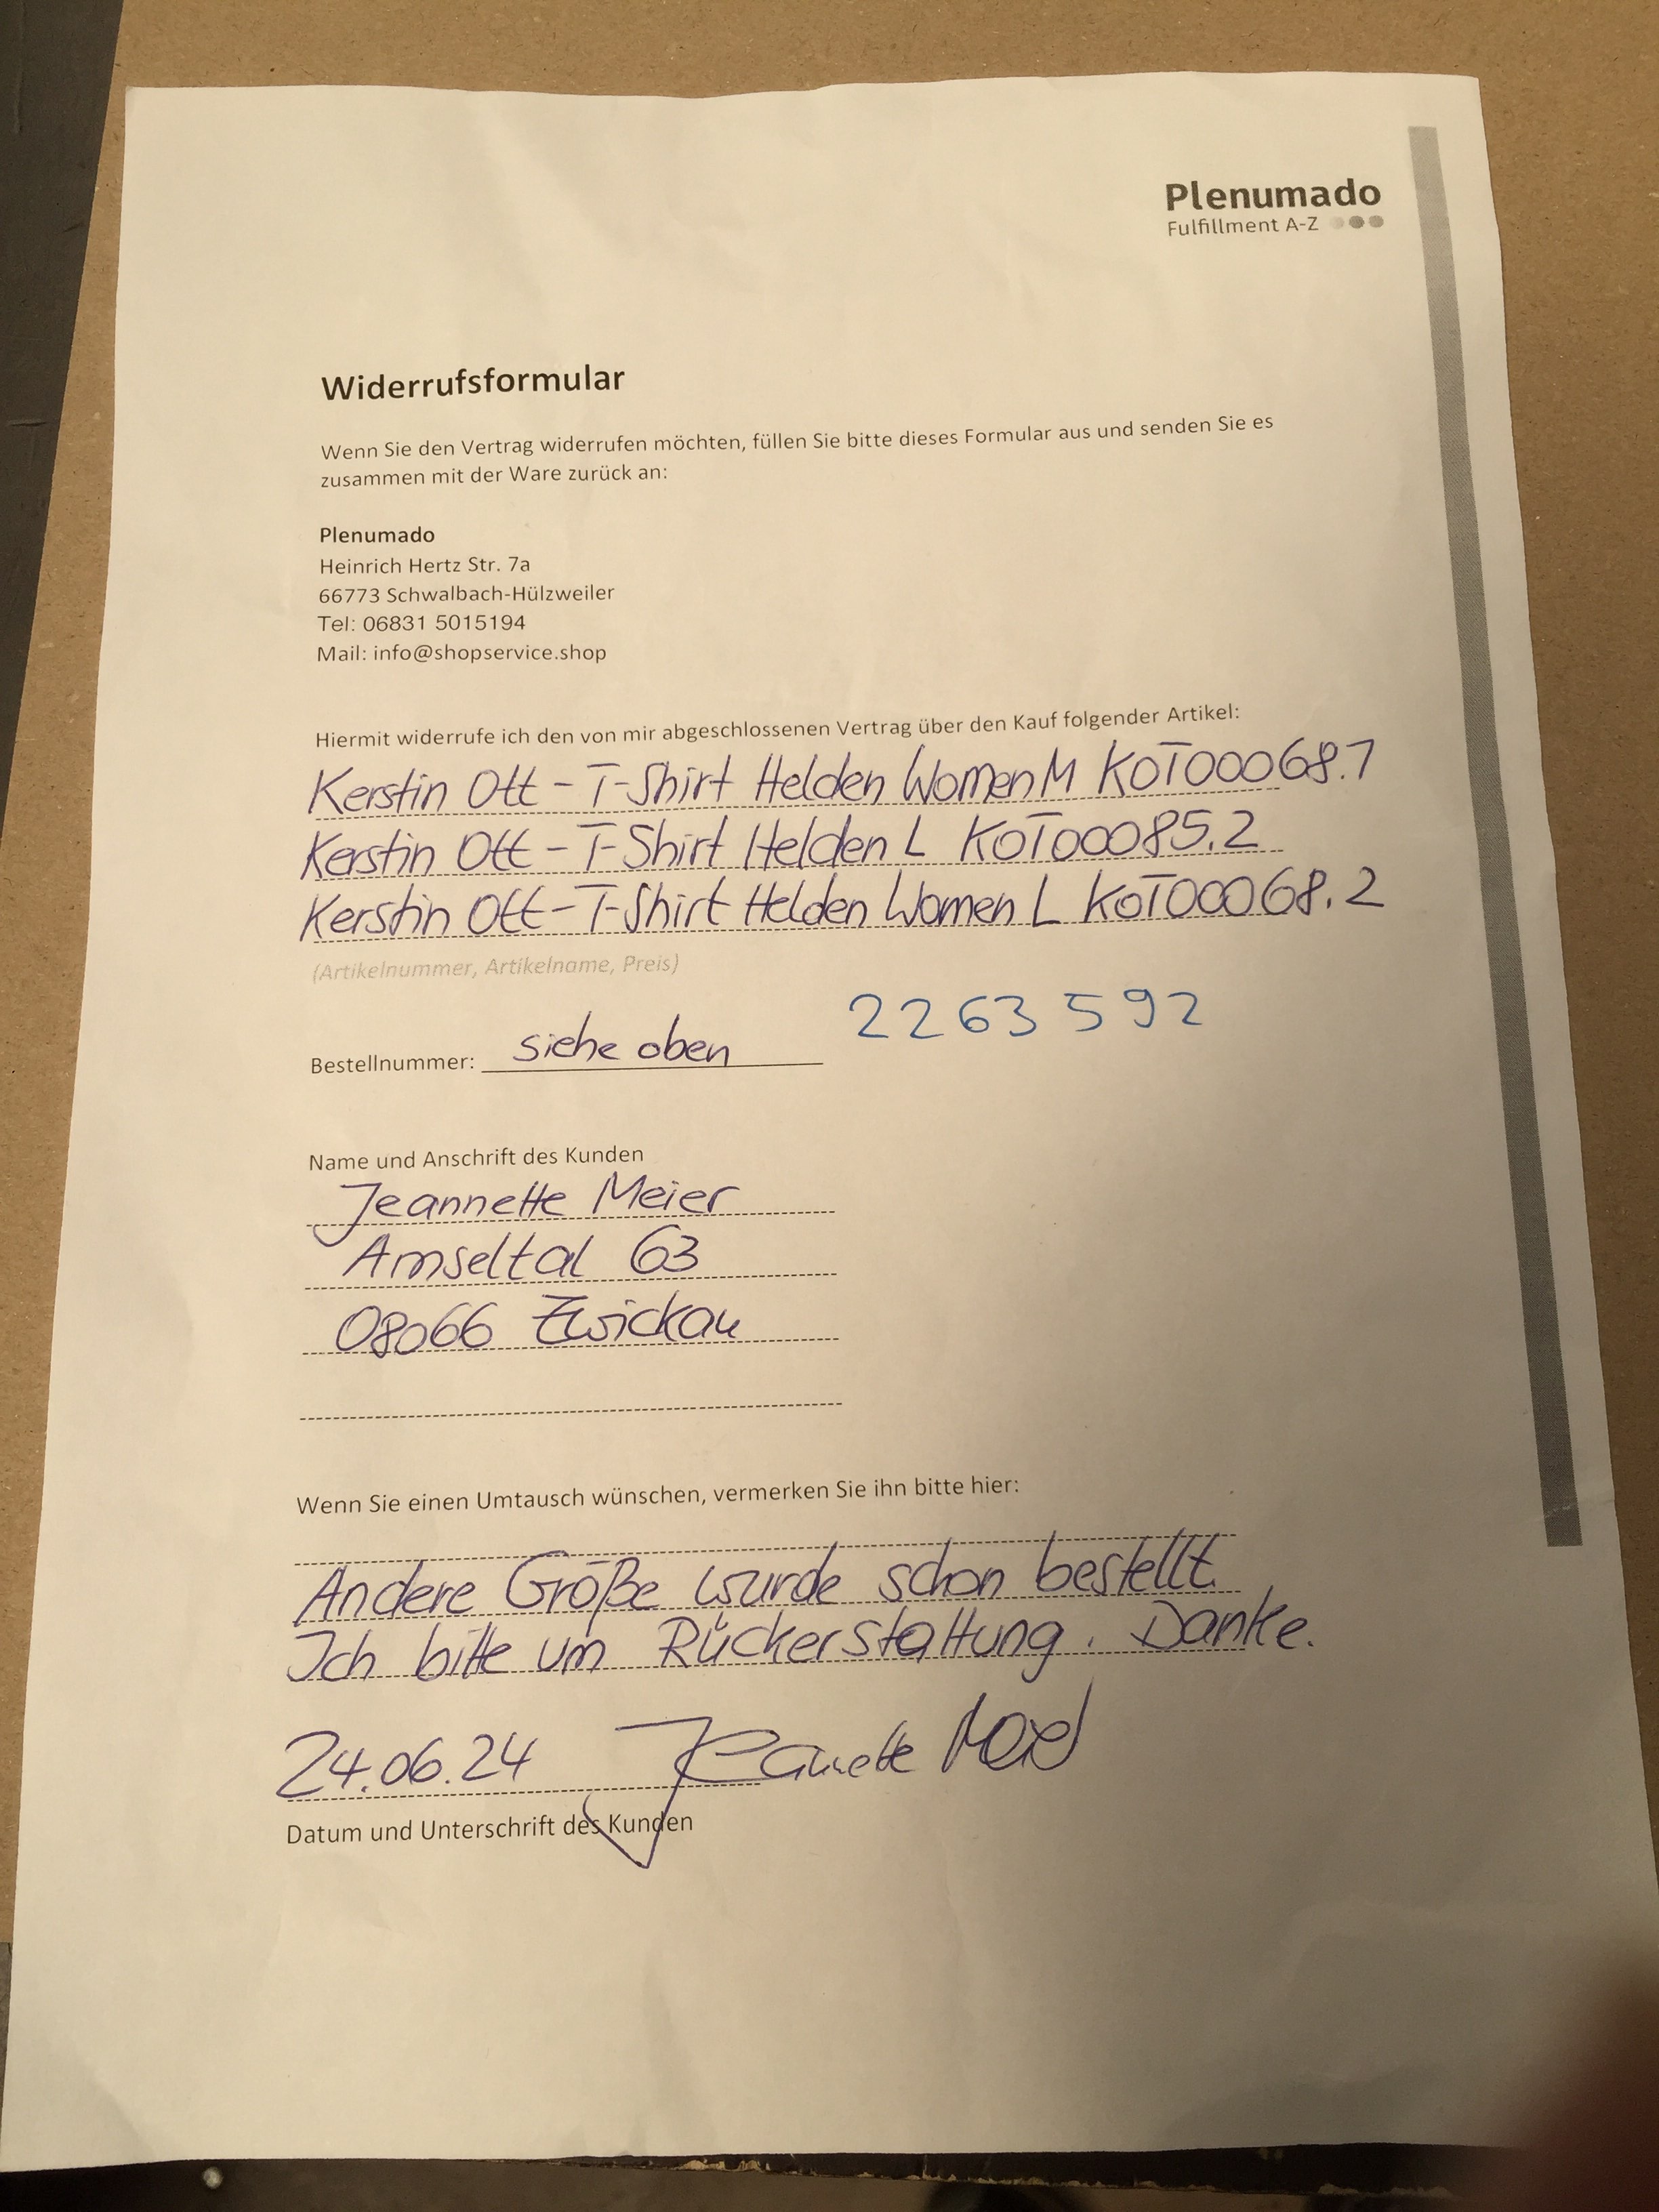 Plenumado
Fulfillment A-Z
Widerrufsformular
Wenn Sie den Vertrag widerrufen möchten, füllen Sie bitte dieses Formular aus und senden Sie es
zusammen mit der Ware zurück an:
Plenumado
Heinrich Hertz Str. 7a
66773 Schwalbach-Hülzweiler
Tel: 06831 5015194
Mail: info@shopservice.shop
Hiermit widerrufe ich den von mir abgeschlossenen Vertrag über den Kauf folgender Artikel:
Kerstin Ott - T-Shirt Helden Women M KOT00068.1
Kerstin Ott - T-Shirt Helden L KOT00085.2
Kerstin Ott - T-Shirt Helden Women L KOT00068.2
(Artikelnummer, Artikelname, Preis)
2263592
Bestellnummer: siehe oben
Name und Anschrift des Kunden
Jeannette Meier
Amseltal 63
08066 Zwickau
Wenn Sie einen Umtausch wünschen, vermerken Sie ihn bitte hier:
Andere Größe wurde schon bestellt.
Ich bitte um Rückerstattung. Danke.
24.06.24 Jeannette Meier
Datum und Unterschrift des Kunden